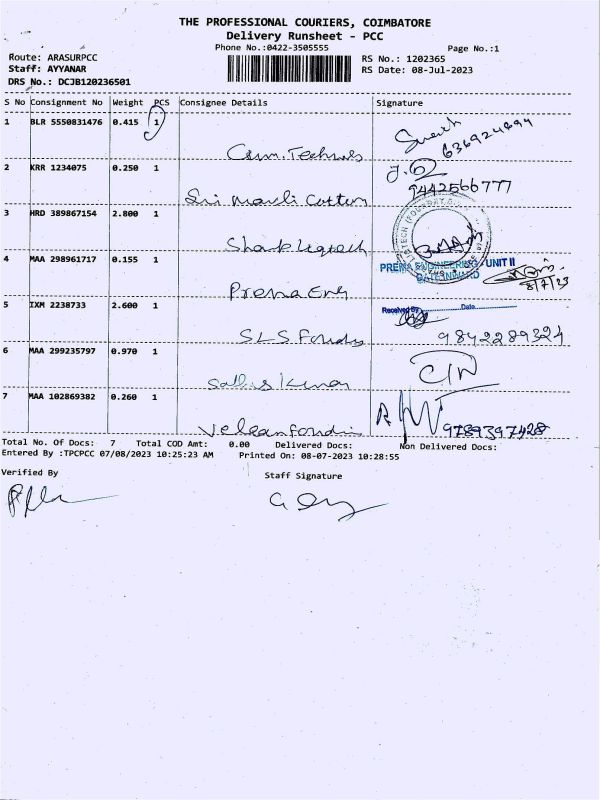 THE PROFESSIONAL COURIERS, COIMBATORE
Delivery Runsheet - PCC
Phone No.:0422-3505555
Page No.:1
Route: ARASURPCC
RS No.: 1202365
Staff: AYYANAR
RS Date: 08-Jul-2023
DRS No.: DCJB120236501
S No Consignment No Weight PCS Consignee Details Signature
1 BLR 5550831476 0.415 1
2 KRR 1234075 0.250 1
9442566777
3 HRD 389867154 2.800 1
4 MAA 298961717 0.155 1
PREMA ENGINEERING - UNIT II
DATE INWARD
Prema Eng
8/7/23
5 IXM 2238733 2.600 1
Received By Date
9842289324
6 MAA 299235797 0.970 1
7 MAA 102869382 0.260 1
9789397428
Total No. Of Docs: 7 Total COD Amt: 0.00 Delivered Docs: Non Delivered Docs:
Entered By :TPCPCC 07/08/2023 10:25:23 AM Printed On: 08-07-2023 10:28:55
Verified By
Staff Signature